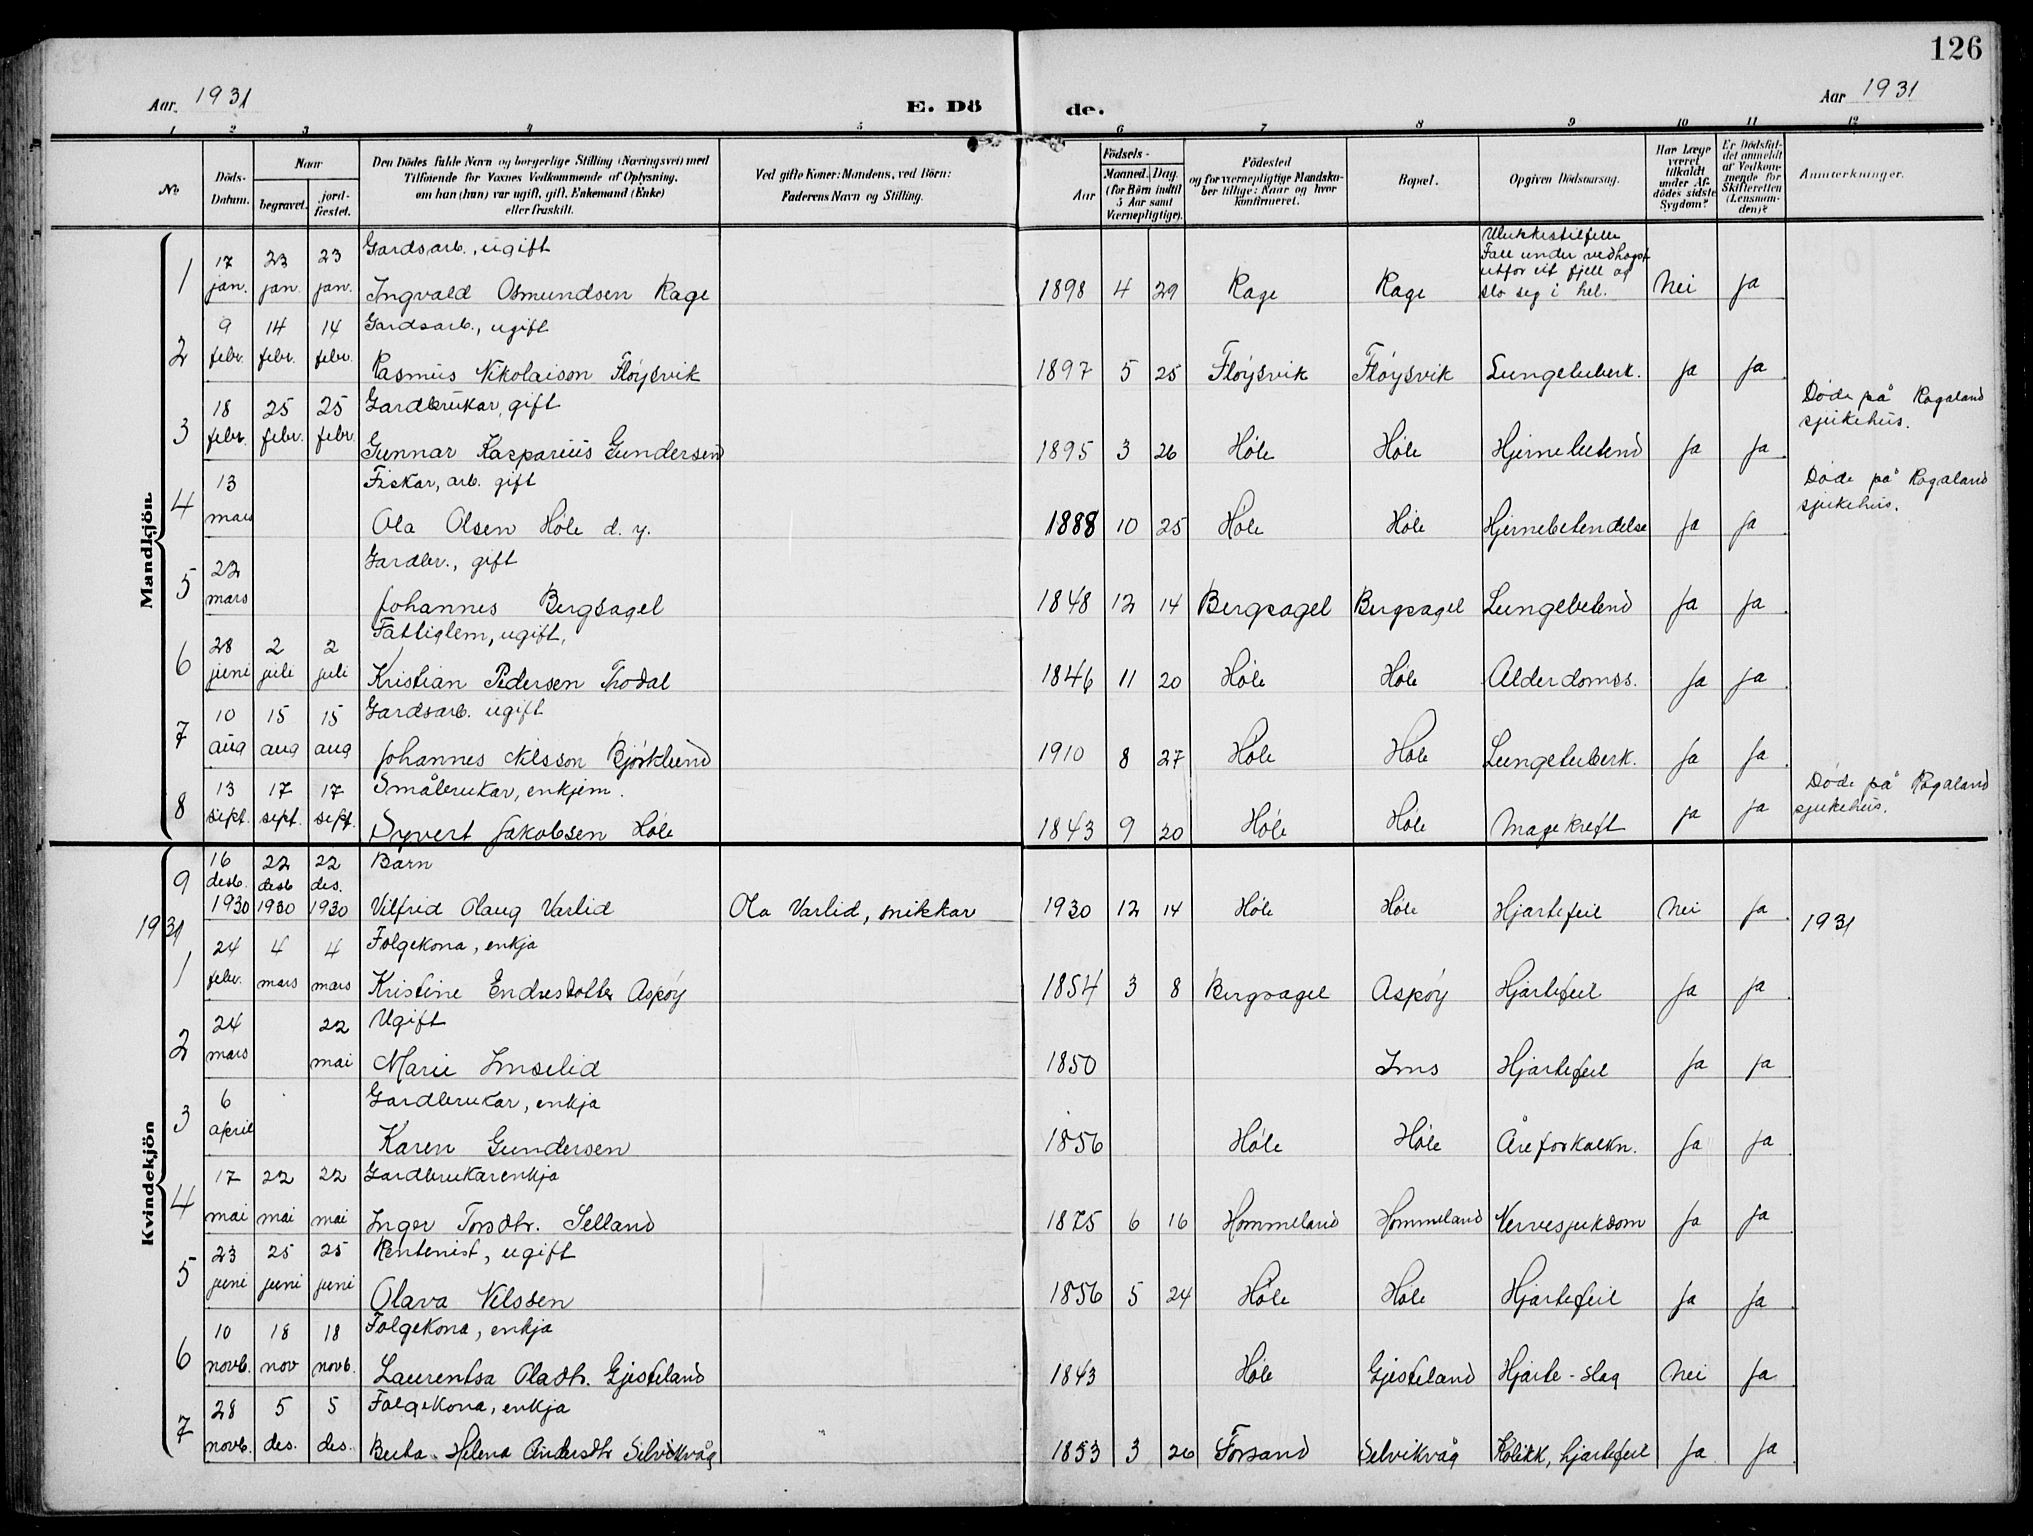 126
Aar 1931 E. Dö de. Aar 1931
1 2 3 4 5 6 7 8 9 10 11 12
No
Döds-Datum.
Naar
begravet.
jord-fæstet.
Den Dödes fulde Navn og borgerlige Stilling (Næringsvei) med
Tilföiende for Voxnes Vedkommende af Oplysning,
om han (hun) var ugift, gift, Enkemand (Enke)
eller fraskilt.
Ved gifte Koner: Mandens, ved Börn:
Faderens Navn og Stilling.
Födsels-
Aar
Maaned. Dag.
(for Börn indtil
5 Aar samt
Værnepligtige).
Födested
og for værnepligtige Mandska-
ber tillige: Naar og hvor
konfirmeret.
Bopæl.
Opgiven Dödsaarsag.
Har Læge
været
tilkaldt
under Af-
dödes sidste
Sygdom?
Er Dödsfal-
det anmeldt
af Vedkom-
mende for
Skifteretten
(Lensman-
den)?
Anmerkninger.
Mandkjön
1 17 jan. 23 jan. 23 jan. Gardsarb., ugift
Ingvald Osmundsen Rage 1898 4 29 Rage Rage Ulukkestilfelle
Fall under vedhogst
utfor eit fjell og
slo seg i hel. Nei Ja
2 9 febr. 14 febr. 14 febr. Gardsarb., ugift
Rasmus Nikolaison Fløysvik 1897 5 25 Fløysvik Fløysvik Lungetuberk. Ja Ja
3 18 febr. 25 febr. 25 febr. Gardbrukar, gift
Gunnar Kasparius Gundersen 1895 3 26 Høle Høle Hjernebetend Ja Ja Døde på Rogaland
sjukehus.
4 13 mars Fiskar, arb. gift
Ola Olsen Høle d. y. 1888 10 25 Høle Høle Hjernebetendelse Ja Ja Døde på Rogaland
sjukehus.
5 22 mars Gardbr., gift
Johannes Bergsagel 1848 12 14 Bergsagel Bergsagel Lungebetend Ja Ja
6 28 juni 2 juli 2 juli Fattiglem, ugift,
Kristian Pedersen Trodal 1846 11 20 Høle Høle Alderdomss. Ja Ja
7 10 aug 15 aug 15 aug Gardsarb. ugift
Johannes Nilsson Bjørklund 1910 8 27 Høle Høle Lungetuberk. Ja Ja
8 13 sept. 17 sept. 17 sept. Småbrukar, enkjem.
Syvert Jakobsen Høle 1843 9 20 Høle Høle Magekreft Ja Ja Døde på Rogaland
sjukehus.
Kvindekjön
9 16 desb. 1930 22 desb 1930 22 des. 1930 Barn
Vilfrid Olaug Varlid Ola Varlid, snikkar 1930 12 14 Høle Høle Hjartefeil Nei Ja
1931 1931
1 24 febr. 4 mars 4 mars Folgekona, enkja
Kristine Endresdotter Aspøy 1854 3 8 Bergsagel Aspøy Hjartefeil Ja Ja
2 24 mars 22 mai Ugift
Marie Imslid 1850 Ims Hjartefeil Ja Ja
3 6 april Gardbrukar, enkja
Karen Gundersen 1856 Høle Høle Åreforkalkn. Ja Ja
4 17 mai 22 mai 22 mai Gardbrukarenkja
Inger Torsdtr. Selland 1875 6 16 Hommeland Hommeland Nervesjukdom Ja Ja
5 23 juni 25 juni 25 juni Rentenist, ugift
Olava Nilssen 1856 5 24 Høle Høle Hjartefeil Ja Ja
6 10 novb. 18 nov 18 novb. Folgekona, enkja
Laurentsa Oladtr. Gjesteland 1843 Høle Gjesteland Hjarte-slag Nei Ja
7 28 novb. 5 des. 5 des. Folgekona, enkja
Berta Helena Andersdtr Selvikvåg 1853 3 26 Forsand Selvikvåg Kolikk, hjartefeil Ja Ja